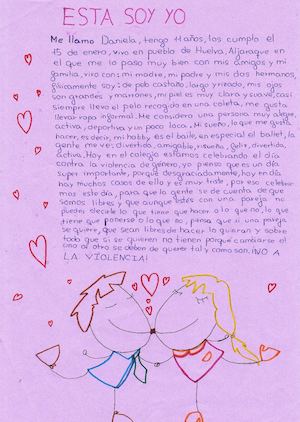 ESTA SOY YO
Me llamo Daniela, tengo 11 años, los cumplo el
15 de enero, vivo en pueblo de Huelva, Aljaraque en
el que me lo paso muy bien con mis amigos y mi
familia, vivo con: mi madre, mi padre y mis dos hermanos,
físicamente soy: de pelo castaño, largo y rizado, mis ojos
son grandes y marrones, mi piel es muy clara y suave, casi
siempre llevo el pelo recogido en una coleta, me gusta
llevar ropa informal. Me considero una persona muy alegre,
activa, deportiva y un poco loca. Mi sueño, lo que me gusta
hacer, es decir, mi hobby, es el baile, en especial el ballet, la
gente me ve: divertida, amigable, risueña, feliz, divertida,
activa. Hoy en el colegio estamos celebrando el día
contra la violencia de género, yo pienso que es un día
super importante, porque desgraciadamente, hoy en día
hay muchos casos de ello y es muy triste, por eso celebra-
mos este día, para que la gente se de cuenta de que
somos libres y que aunque estés con una pareja no
puedes decirle lo que tiene que hacer o lo que no, lo que
tiene que ponerse o lo que no, pienso que si una pareja
se quiere, que sean libres de hacer lo quieran y sobre
todo que si se quieren no tienen porqué cambiarse el
uno al otro se deben de querer tal y como son. ¡NO A
LA VIOLENCIA!